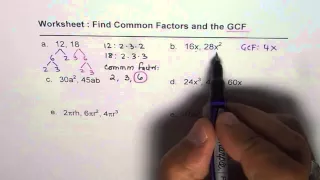 Worksheet : Find Common Factors and the GCF
a. 12, 18
12 : 2·3·2
18 : 2·3·3
6 2 3 6
2 3 2 3
common factors
2, 3, 6
b. 16x, 28x²
GCF: 4x
c. 30a², 45ab
d. 24x³, 60x
e. 2πrh, 6πr², 4πr³